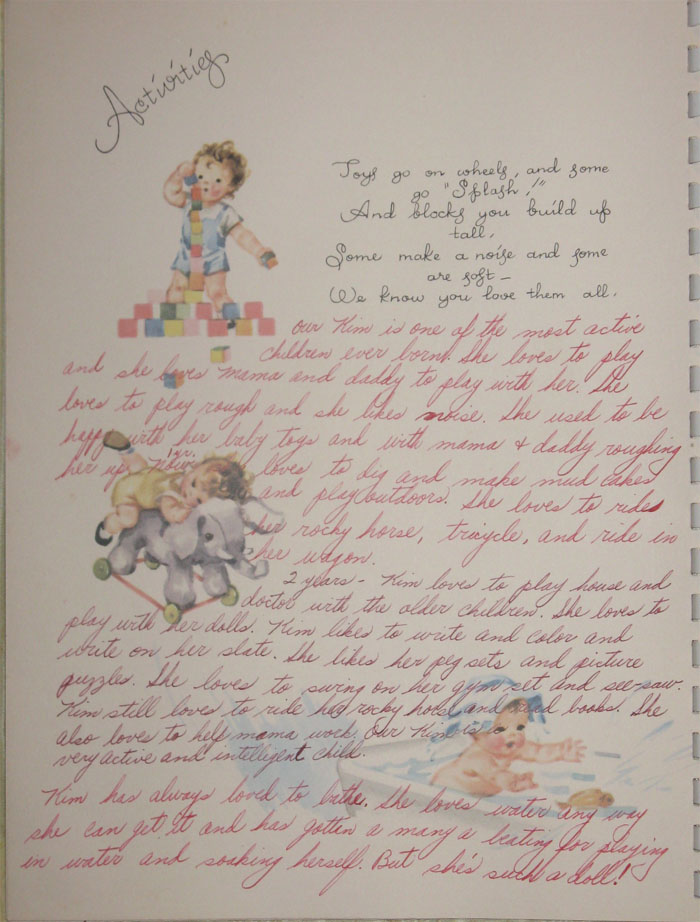 Activities
Toys go on wheels, and some
go "Splash!"
And blocks you build up
tall.
Some make a noise and some
are soft —
We know you love them all.
our Kim is one of the most active
children ever born. She loves to play
and she loves mama and daddy to play with her. She
loves to play rough and she likes noise. She used to be
happy with her baby toys and with mama & daddy roughing
her up. Now 1 yr. loves to dig and make mud cakes
and play outdoors. She loves to ride
her rocky horse, tricycle, and ride in
her wagon.
2 years - Kim loves to play house and
doctor with the older children. She loves to
play with her dolls. Kim likes to write and color and
write on her slate. She likes her peg sets and picture
puzzles. She loves to swing on her gym set and see-saw.
Kim still loves to ride her rocky horse and read books. She
also loves to help mama work. Our Kim is a
very active and intelligent child.
Kim has always loved to bathe. She loves water any way
she can get it and has gotten a many a beating for playing
in water and soaking herself. But she's such a doll!